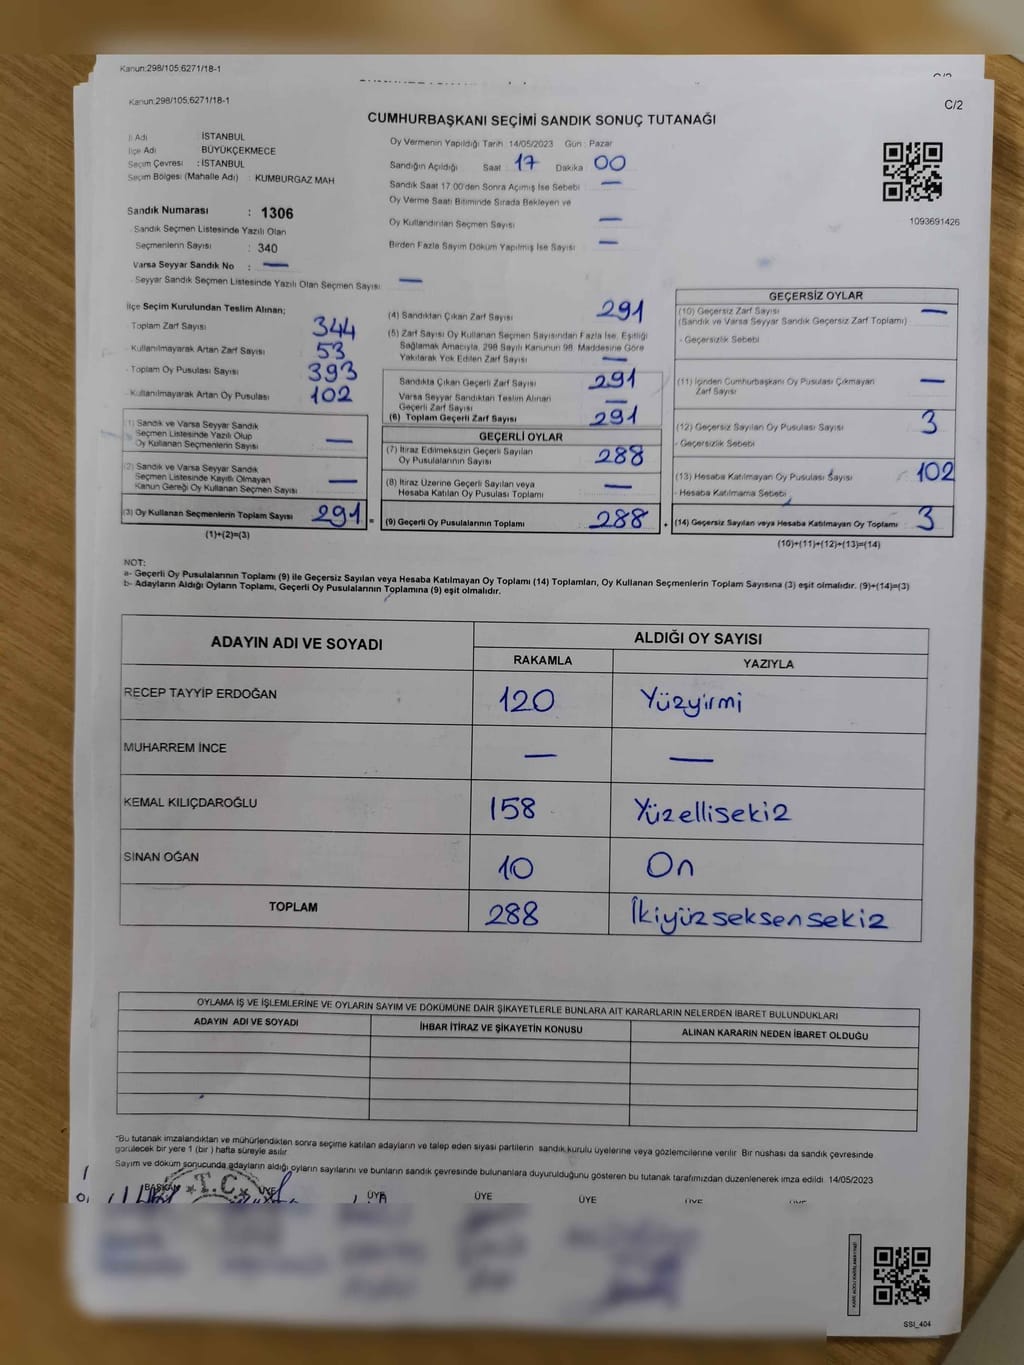 Kanun:298/105.6271/18-1
Kanun:298/105.6271/18-1
C/2
CUMHURBAŞKANI SEÇİMİ SANDIK SONUÇ TUTANAĞI
İl Adı İSTANBUL
İlçe Adı BÜYÜKÇEKMECE
Seçim Çevresi : İSTANBUL
Seçim Bölgesi (Mahalle Adı) : KUMBURGAZ MAH
Sandık Numarası : 1306
Sandık Seçmen Listesinde Yazılı Olan
Seçmenlerin Sayısı : 340
Varsa Seyyar Sandık No : —
Seyyar Sandık Seçmen Listesinde Yazılı Olan Seçmen Sayısı —
Oy Vermenin Yapıldığı Tarih 14/05/2023 Gün : Pazar
Sandığın Açıldığı Saat 17 Dakika 00
Sandık Saat 17.00'den Sonra Açılmış İse Sebebi —
Oy Verme Saati Bitiminde Sırada Bekleyen ve
Oy Kullandırılan Seçmen Sayısı —
Birden Fazla Sayım Döküm Yapılmış İse Sayısı —
1093691426
İlçe Seçim Kurulundan Teslim Alınan;
Toplam Zarf Sayısı 344
Kullanılmayarak Artan Zarf Sayısı 53
Toplam Oy Pusulası Sayısı 393
Kullanılmayarak Artan Oy Pusulası 102
(1) Sandık ve Varsa Seyyar Sandık
Seçmen Listesinde Yazılı Olup
Oy Kullanan Seçmenlerin Sayısı —
(2) Sandık ve Varsa Seyyar Sandık
Seçmen Listesinde Kayıtlı Olmayan
Kanun Gereği Oy Kullanan Seçmen Sayısı —
(3) Oy Kullanan Seçmenlerin Toplam Sayısı 291 =
(1)+(2)=(3)
(4) Sandıktan Çıkan Zarf Sayısı 291
(5) Zarf Sayısı Oy Kullanan Seçmen Sayısından Fazla İse, Eşitliği
Sağlamak Amacıyla, 298 Sayılı Kanunun 98. Maddesine Göre
Yakılarak Yok Edilen Zarf Sayısı —
Sandıkta Çıkan Geçerli Zarf Sayısı 291
Varsa Seyyar Sandıktan Teslim Alınan
Geçerli Zarf Sayısı —
(6) Toplam Geçerli Zarf Sayısı 291
GEÇERLİ OYLAR
(7) İtiraz Edilmeksizin Geçerli Sayılan
Oy Pusulalarının Sayısı 288
(8) İtiraz Üzerine Geçerli Sayılan veya
Hesaba Katılan Oy Pusulası Toplamı —
(9) Geçerli Oy Pusulalarının Toplamı 288 +
GEÇERSİZ OYLAR
(10) Geçersiz Zarf Sayısı —
(Sandık ve Varsa Seyyar Sandık Geçersiz Zarf Toplamı)
- Geçersizlik Sebebi
(11) İçinden Cumhurbaşkanı Oy Pusulası Çıkmayan
Zarf Sayısı —
(12) Geçersiz Sayılan Oy Pusulası Sayısı 3
- Geçersizlik Sebebi
(13) Hesaba Katılmayan Oy Pusulası Sayısı 102
- Hesaba Katılmama Sebebi
(14) Geçersiz Sayılan veya Hesaba Katılmayan Oy Toplamı 3
(10)+(11)+(12)+(13)=(14)
NOT:
a- Geçerli Oy Pusulalarının Toplamı (9) ile Geçersiz Sayılan veya Hesaba Katılmayan Oy Toplamı (14) Toplamları, Oy Kullanan Seçmenlerin Toplam Sayısına (3) eşit olmalıdır. (9)+(14)=(3)
b- Adayların Aldığı Oyların Toplamı, Geçerli Oy Pusulalarının Toplamına (9) eşit olmalıdır.
ADAYIN ADI VE SOYADI ALDIĞI OY SAYISI
RAKAMLA YAZIYLA
RECEP TAYYİP ERDOĞAN 120 Yüzyirmi
MUHARREM İNCE — —
KEMAL KILIÇDAROĞLU 158 Yüzellisekiz
SİNAN OĞAN 10 On
TOPLAM 288 İkiyüzseksensekiz
OYLAMA İŞ VE İŞLEMLERİNE VE OYLARIN SAYIM VE DÖKÜMÜNE DAİR ŞİKAYETLERLE BUNLARA AİT KARARLARIN NELERDEN İBARET BULUNDUKLARI
ADAYIN ADI VE SOYADI İHBAR İTİRAZ VE ŞİKAYETİN KONUSU ALINAN KARARIN NEDEN İBARET OLDUĞU
*Bu tutanak imzalandıktan ve mühürlendikten sonra seçime katılan adayların ve talep eden siyasi partilerin sandık kurulu üyelerine veya gözlemcilerine verilir. Bir nüshası da sandık çevresinde
görülecek bir yere 1 (bir) hafta süreyle asılır
Sayım ve döküm sonucunda adayların aldığı oyların sayılarını ve bunların sandık çevresinde bulunanlara duyurulduğunu gösteren bu tutanak tarafımızdan düzenlenerek imza edildi. 14/05/2023
BAŞKAN T.C. ÜYE ÜYE ÜYE ÜYE ÜYE
SSI_404